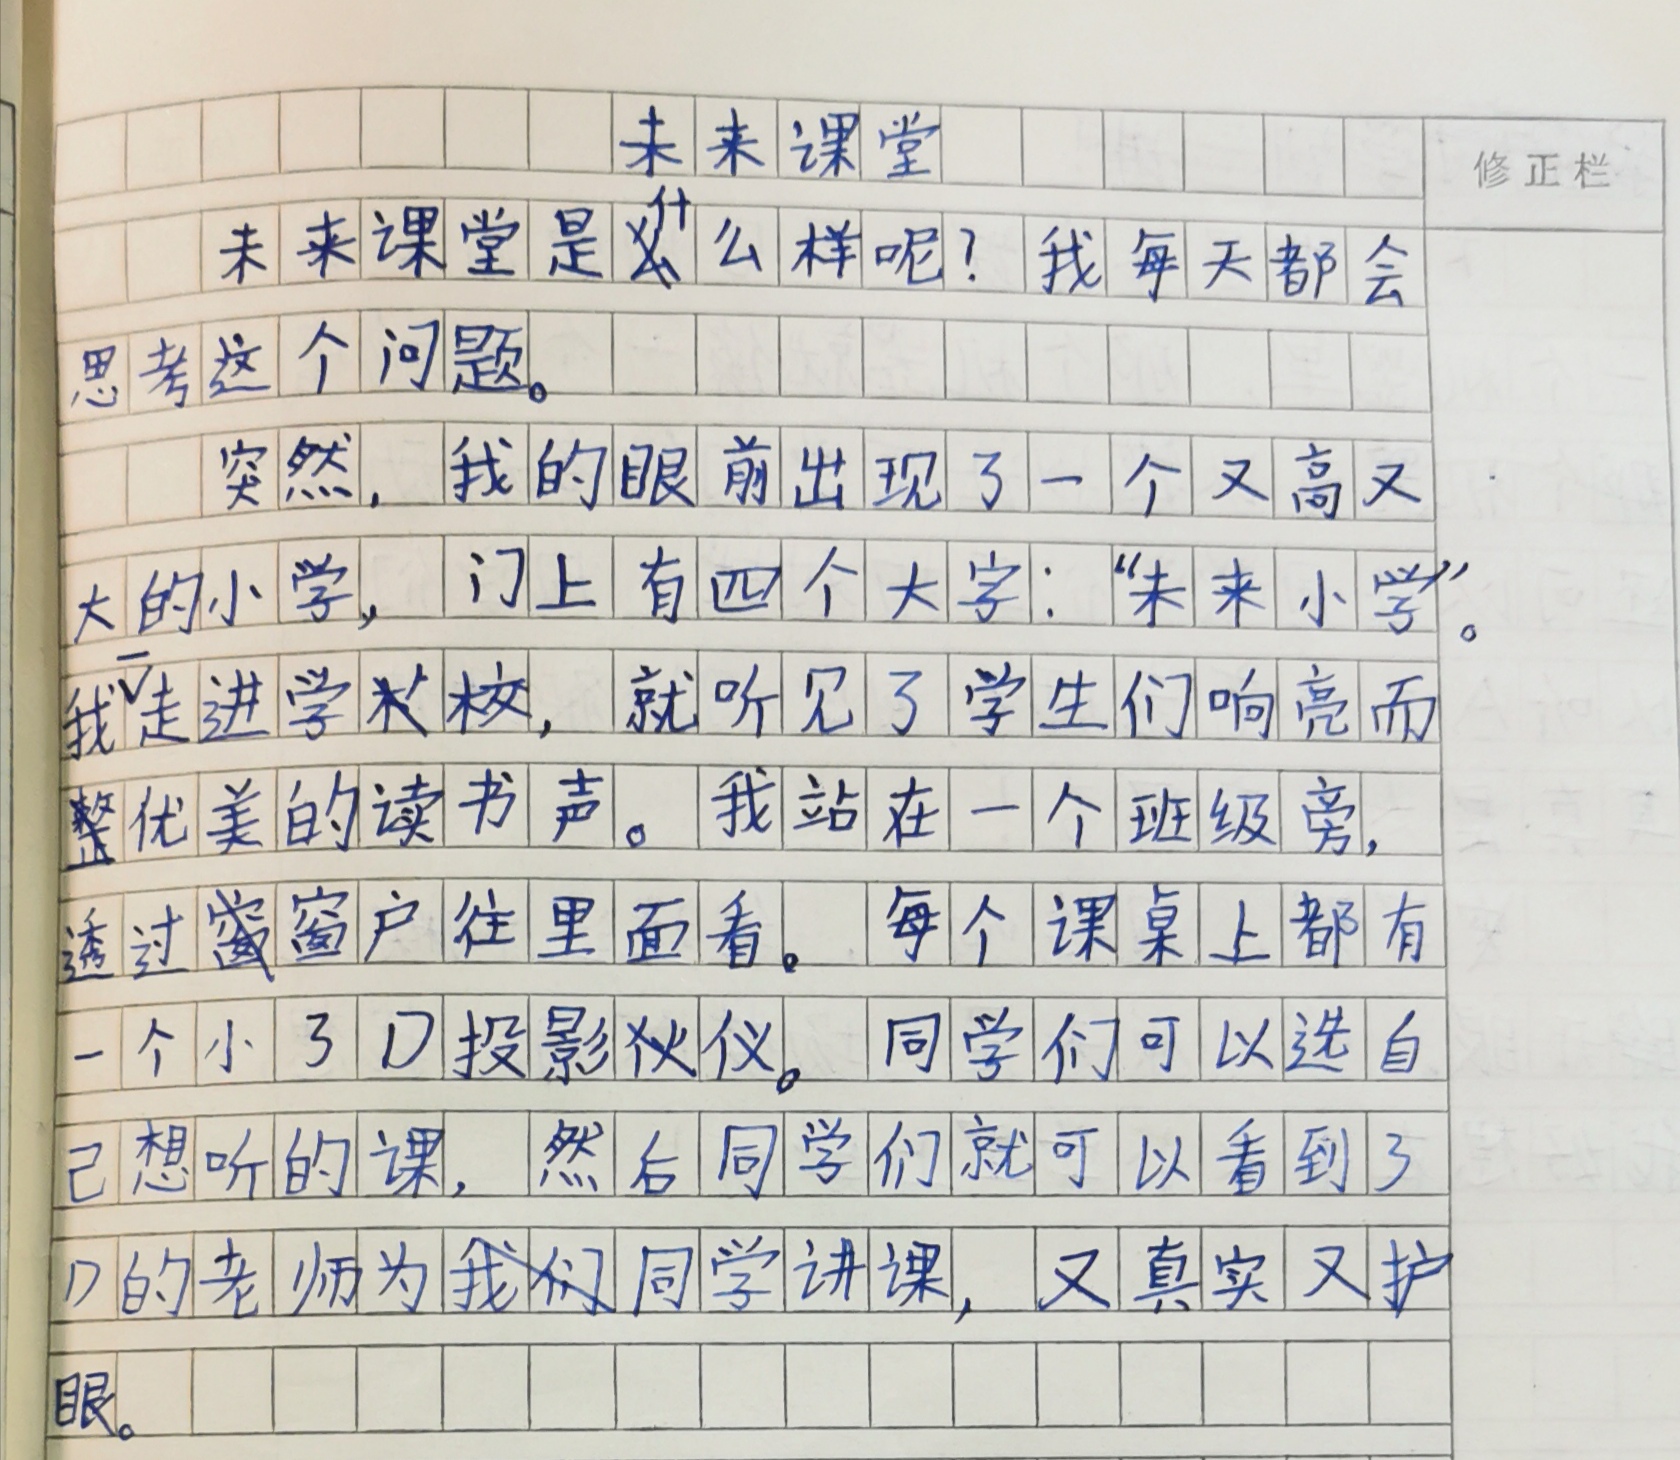 未来课堂
修正栏
未来课堂是什么样呢？我每天都会
思考这个问题。
突然，我的眼前出现了一个又高又
大的小学，门上有四个大字：“未来小学”。
我一走进学校，就听见了学生们响亮而
优美的读书声。我站在一个班级旁，
透过窗户往里面看。每个课桌上都有
一个小3D投影仪。同学们可以选自
己想听的课，然后同学们就可以看到3
D的老师为同学讲课，又真实又护
眼。